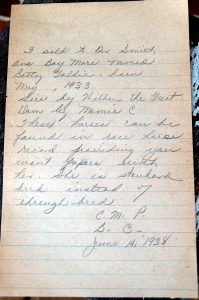 I sold to Dr Smith
one Bay Mare named
Betty Goldie. born
May, 1933
Sire by Wilbur the Great
Dam by Mamie C
These horses can be
found in race horse
record providing you
want papers with
her. She is standard
bred instead of
through-bred.
C. M. P.
S. C.
June 16, 1938